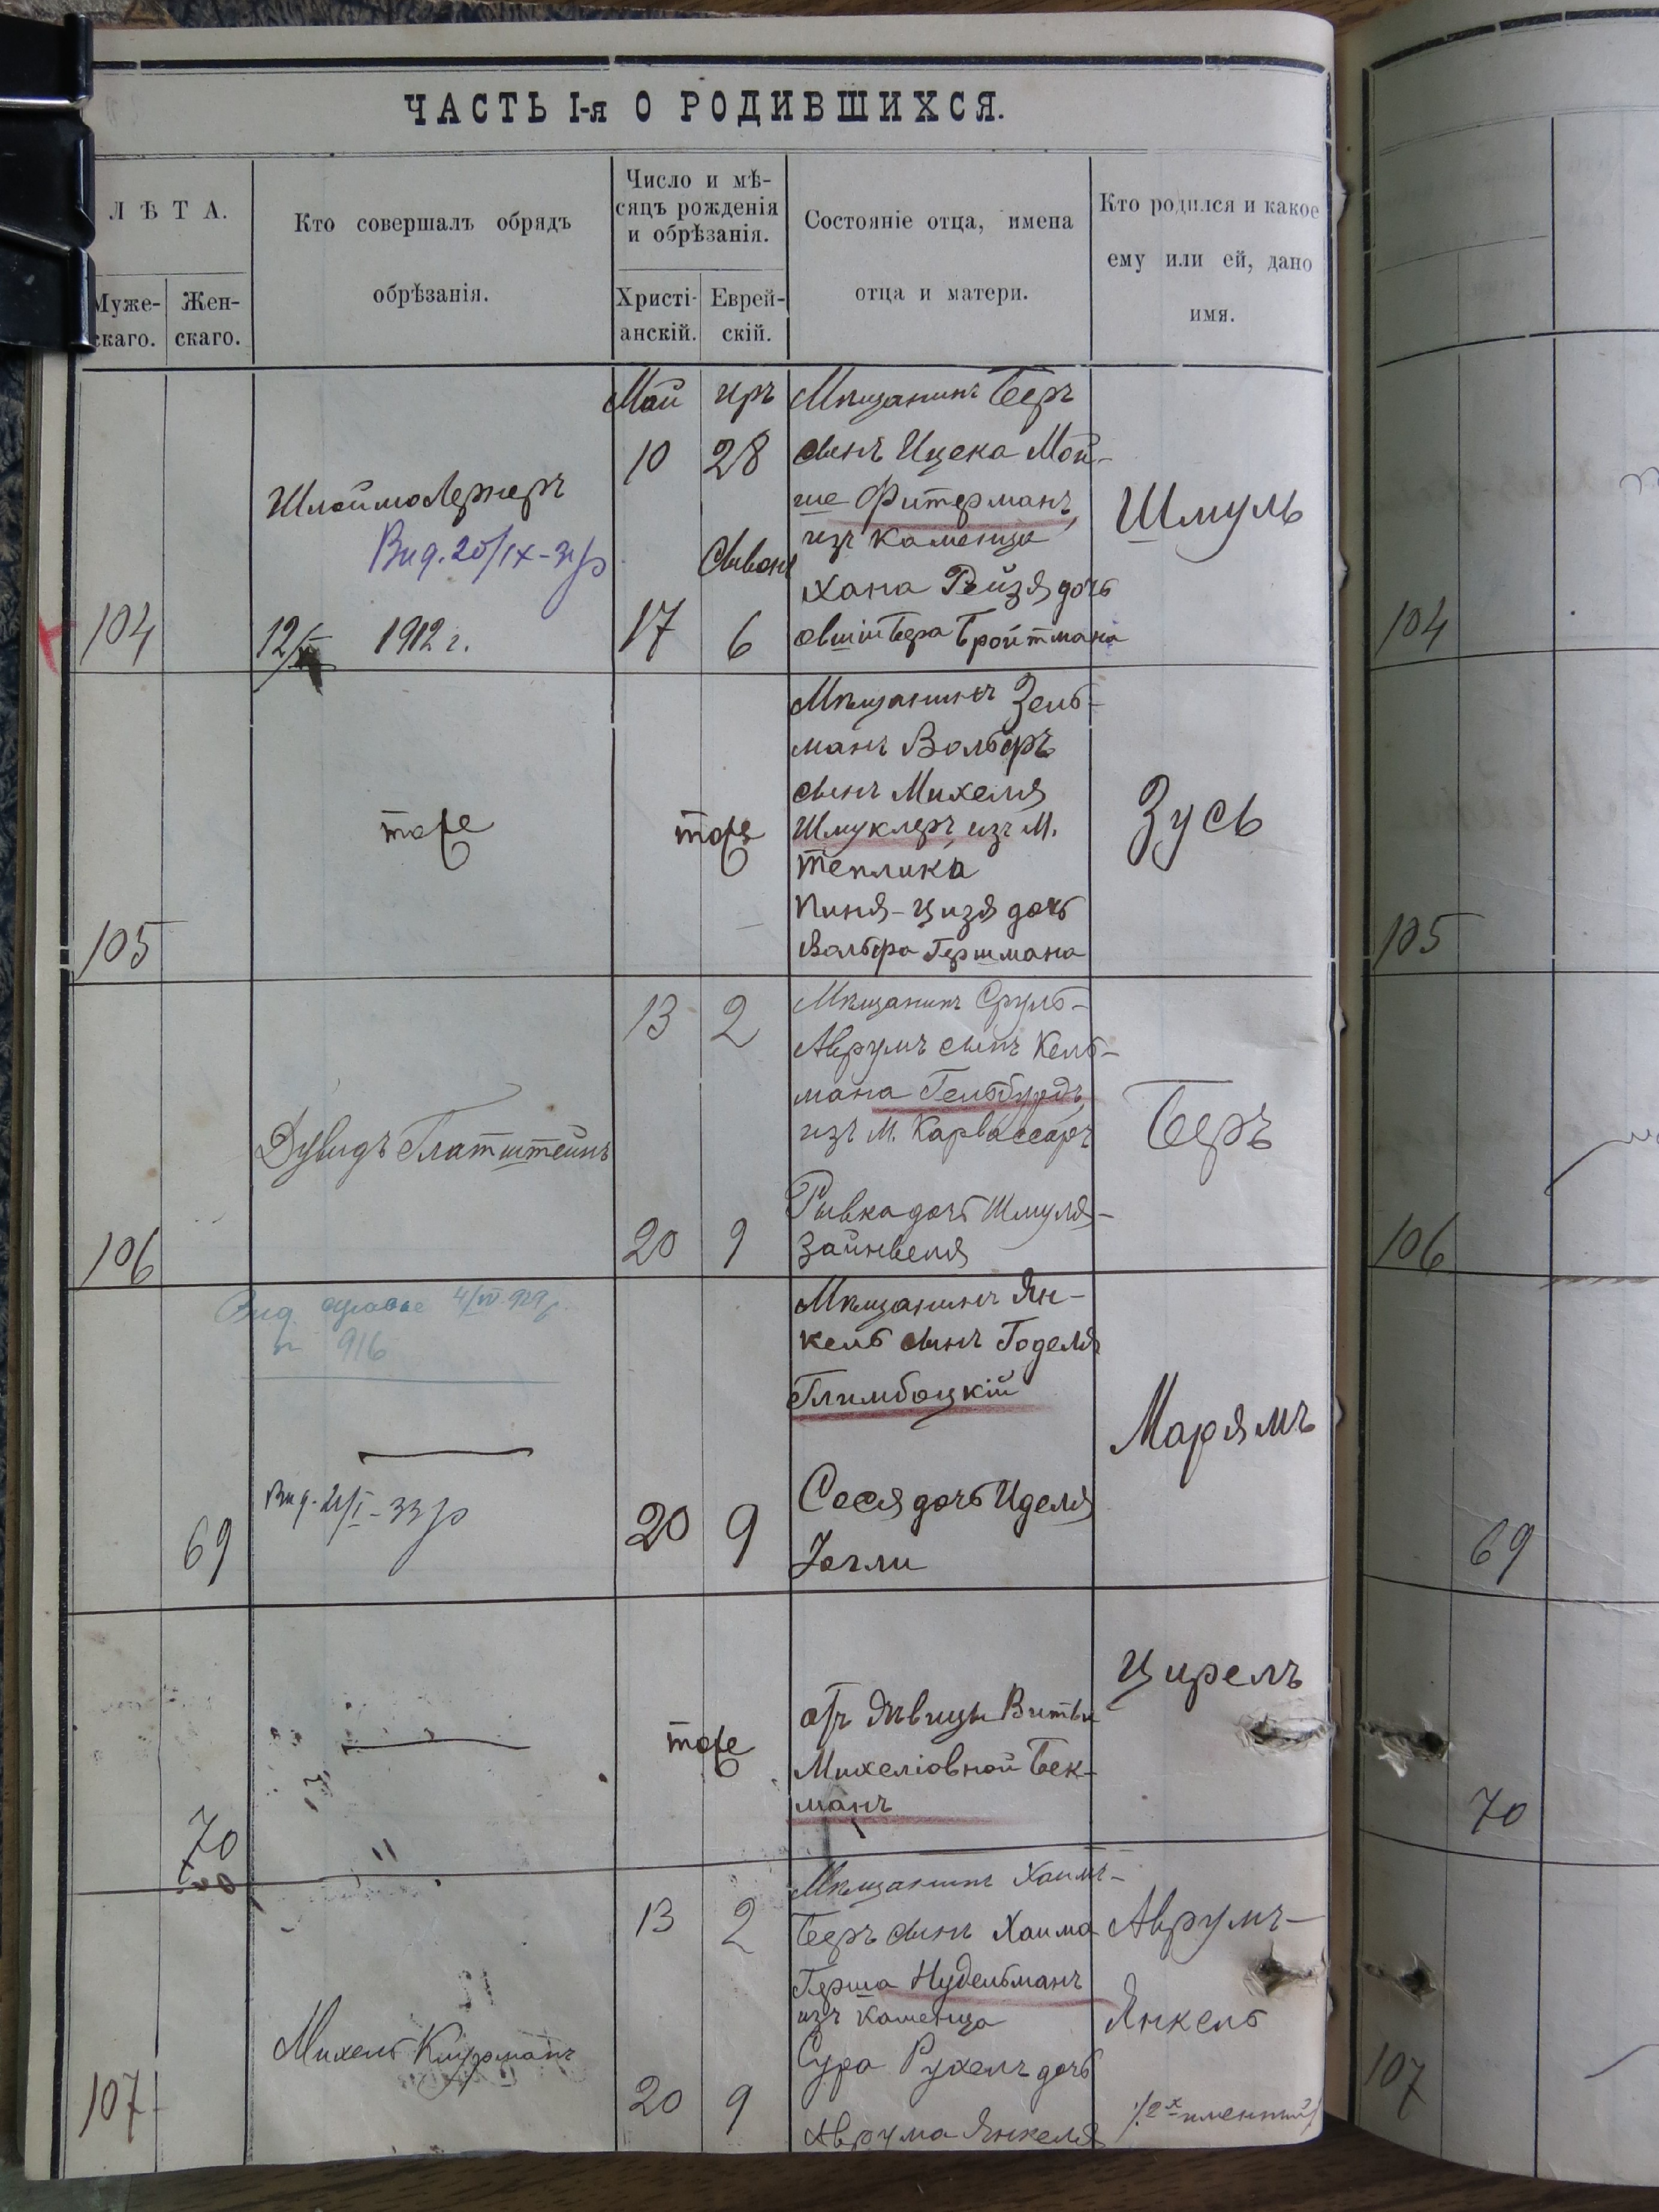 ЧАСТЬ I-я О РОДИВШИХСЯ.
ЛѢТА.
Муже-
скаго.
Жен-
скаго.
Кто совершалъ обрядъ
обрѣзанія.
Число и мѣ-
сяцъ рожденія
и обрѣзанія.
Христі-
анскій.
Еврей-
скій.
Состояніе отца, имена
отца и матери.
Кто родился и какое
ему или ей, дано
имя.
104
Шлоймо Лернеръ
Вид. 20/IX-31р
12/V 1912 г.
Май Иръ
10 28
Сывонъ
17 6
Мѣщанинъ Беръ
сынъ Ицека Мой-
ше Фитерманъ,
изъ Каменца
Хана Рейзя дочь
Овшія Бера Бройтмана
Шмуль
104
105
тоже
тоже
Мѣщанинъ Зель-
манъ Вольфъ
сынъ Михеля
Шмуклеръ, изъ М.
Теплика
Пиня-Цизя дочь
Вольфа Гершмана
Зусь
105
106
Дувидъ Глатштейнъ
13 2
20 9
Мѣщанинъ Сруль-
Аврумъ сынъ Кель-
мана Гельбурдъ,
изъ М. Карвассаръ
Рывка дочь Шмуля-
Зайнвеля
Беръ
106
69
Вид. 4/IV 929р.
№ 916
Вид. 21/I-33р
20 9
Мѣщанинъ Ян-
кель сынъ Годеля
Глимбоцкій
Сося дочь Иделя
Марямъ
69
70
тоже
отъ дѣвицы Витьи
Михеліовной Бек-
манъ
Цирелъ
70
107
Михель Клурманъ
13 2
20 9
Мѣщанинъ Хаимъ-
Беръ сынъ Хаима
Герша Нудельманъ
изъ Каменца
Сура Рухелъ дочь
Аврума Янкеля
Аврумъ-
Янкель
/2х именный/
107